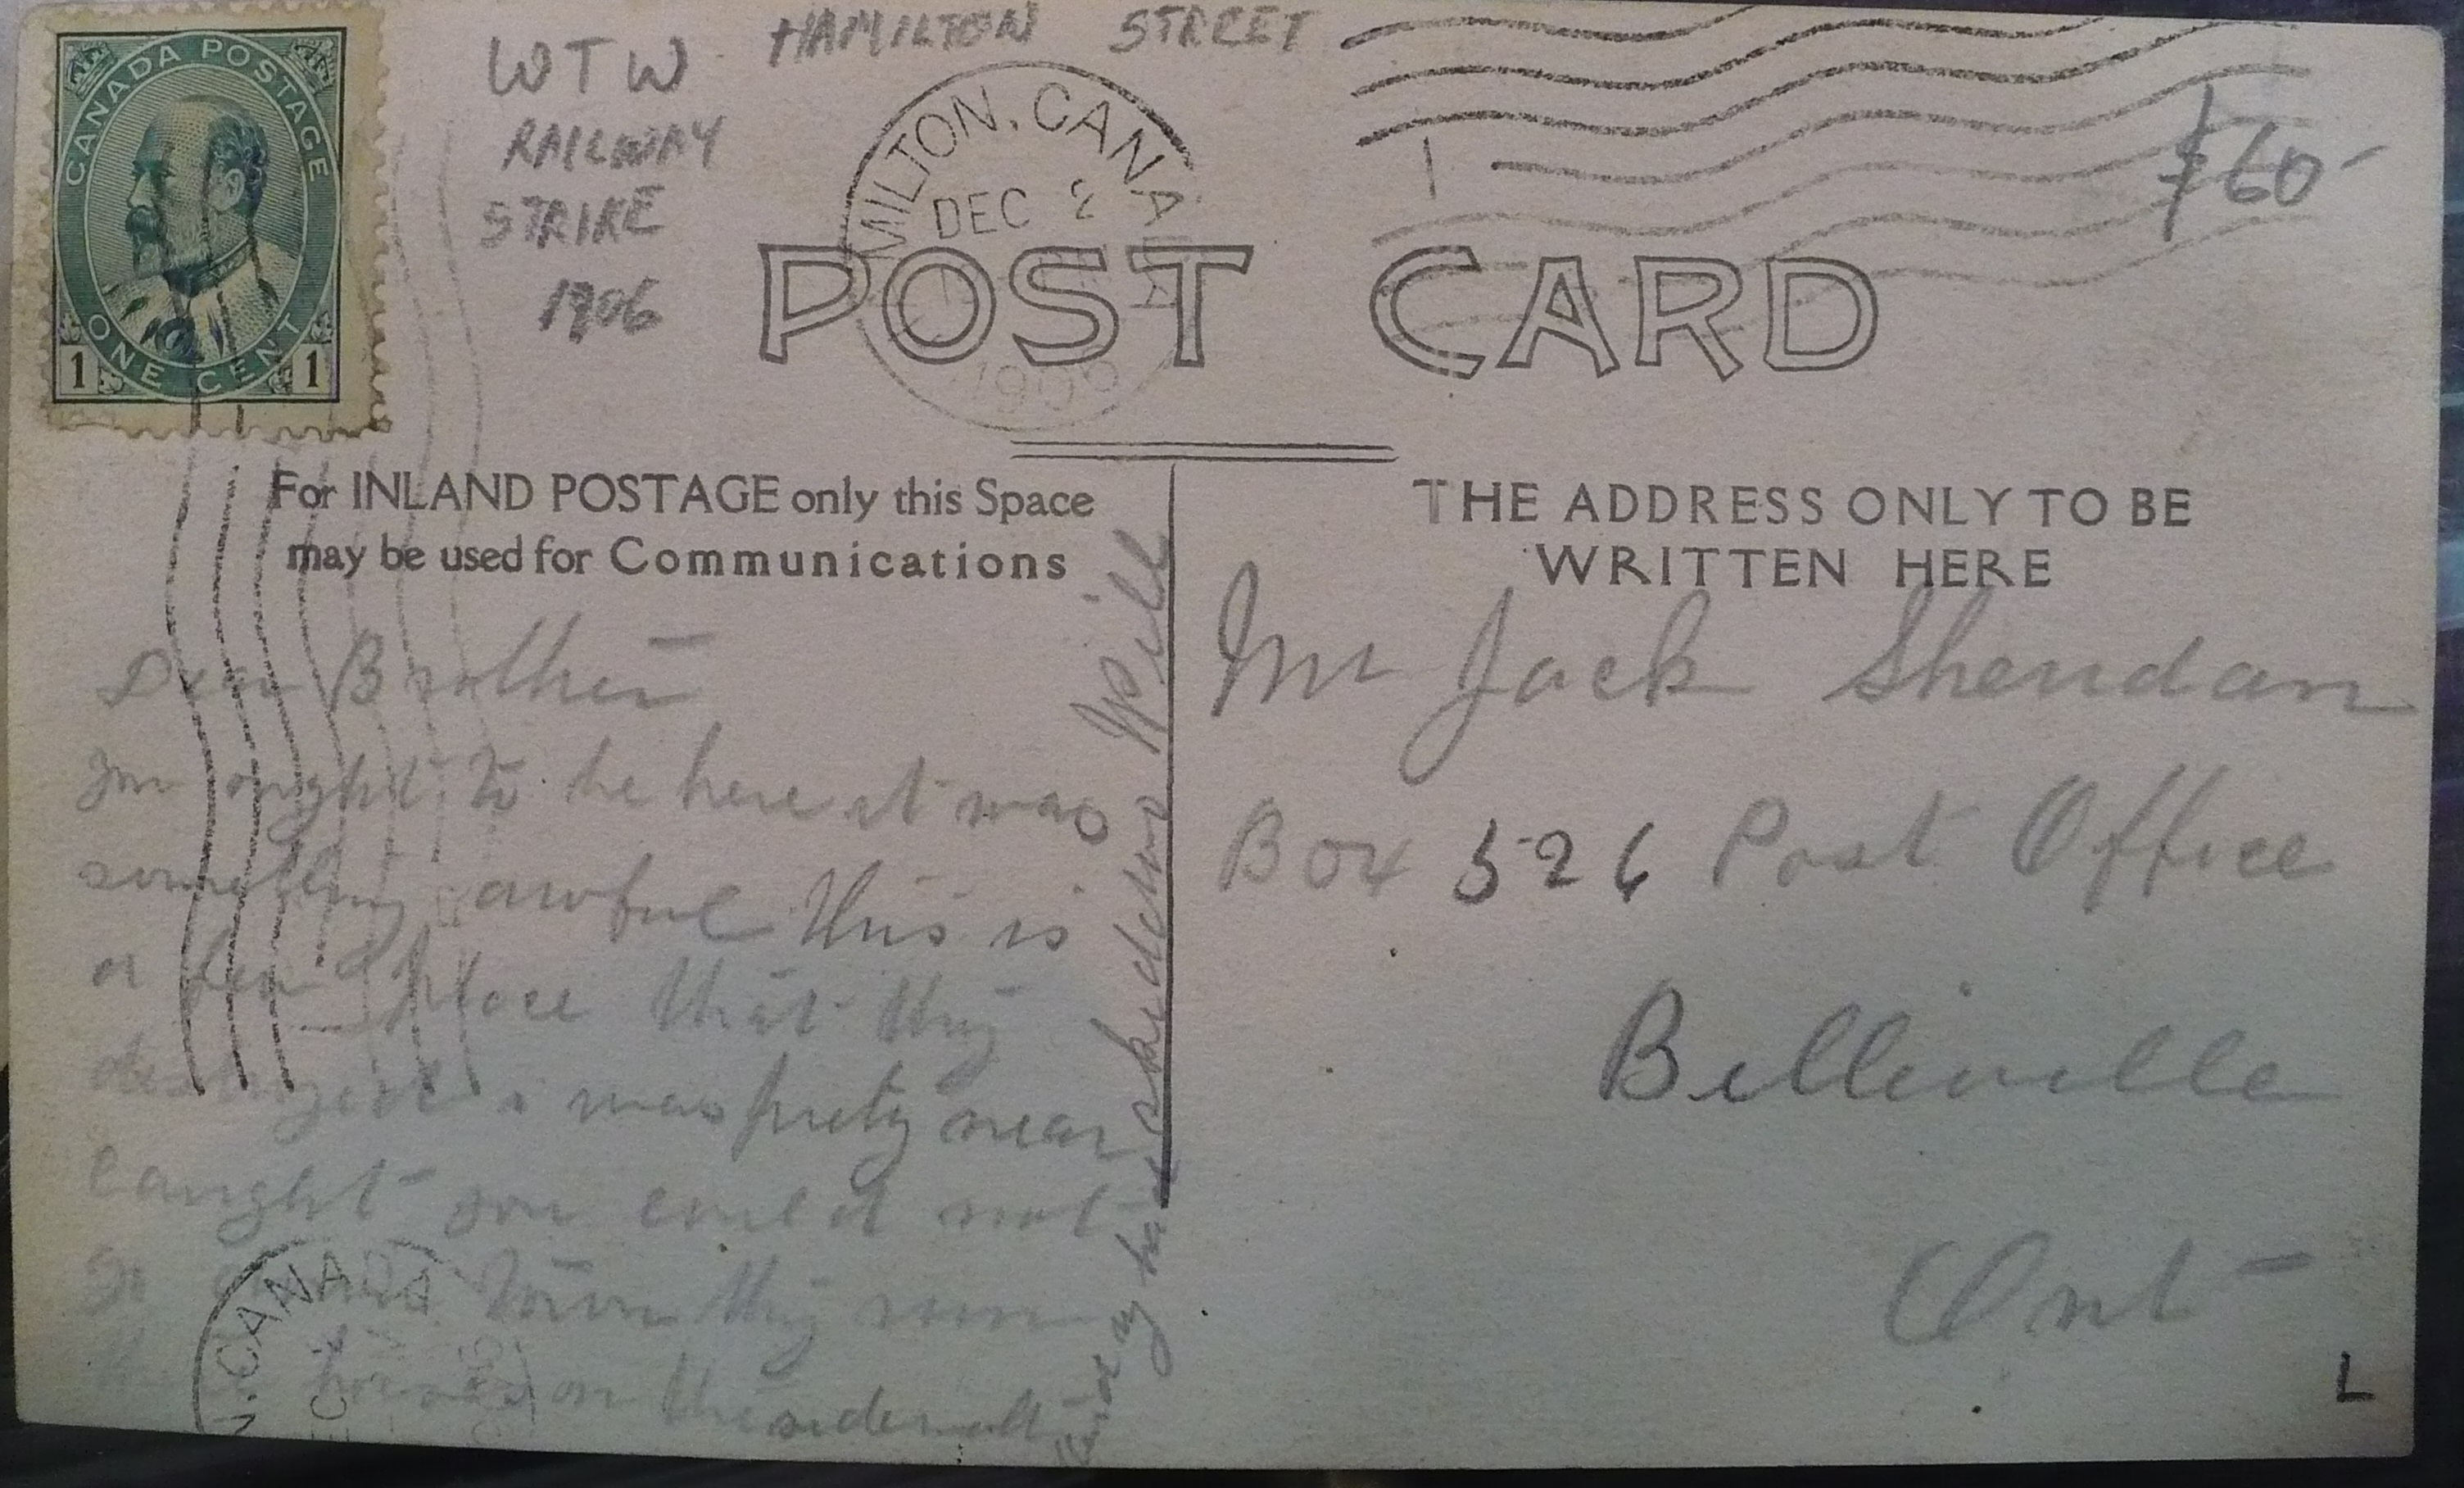 CANADA POSTAGE
ONE CENT
1 1
WTW
RAILWAY
STRIKE
1906
HAMILTON STREET
MILTON, CANADA
DEC 2
1906
$60-
POST CARD
For INLAND POSTAGE only this Space
may be used for Communications
THE ADDRESS ONLY TO BE
WRITTEN HERE
Dear Brother
you ought to be here it was
something awful this is
a few place that they
destroyed i was prety near
caught you could not
go down town they run
the horses on the sidewalk
skiddew
Mr Jack Sheridan
Box 526 Post Office
Belleville
Ont
N. CANADA
DEC
L